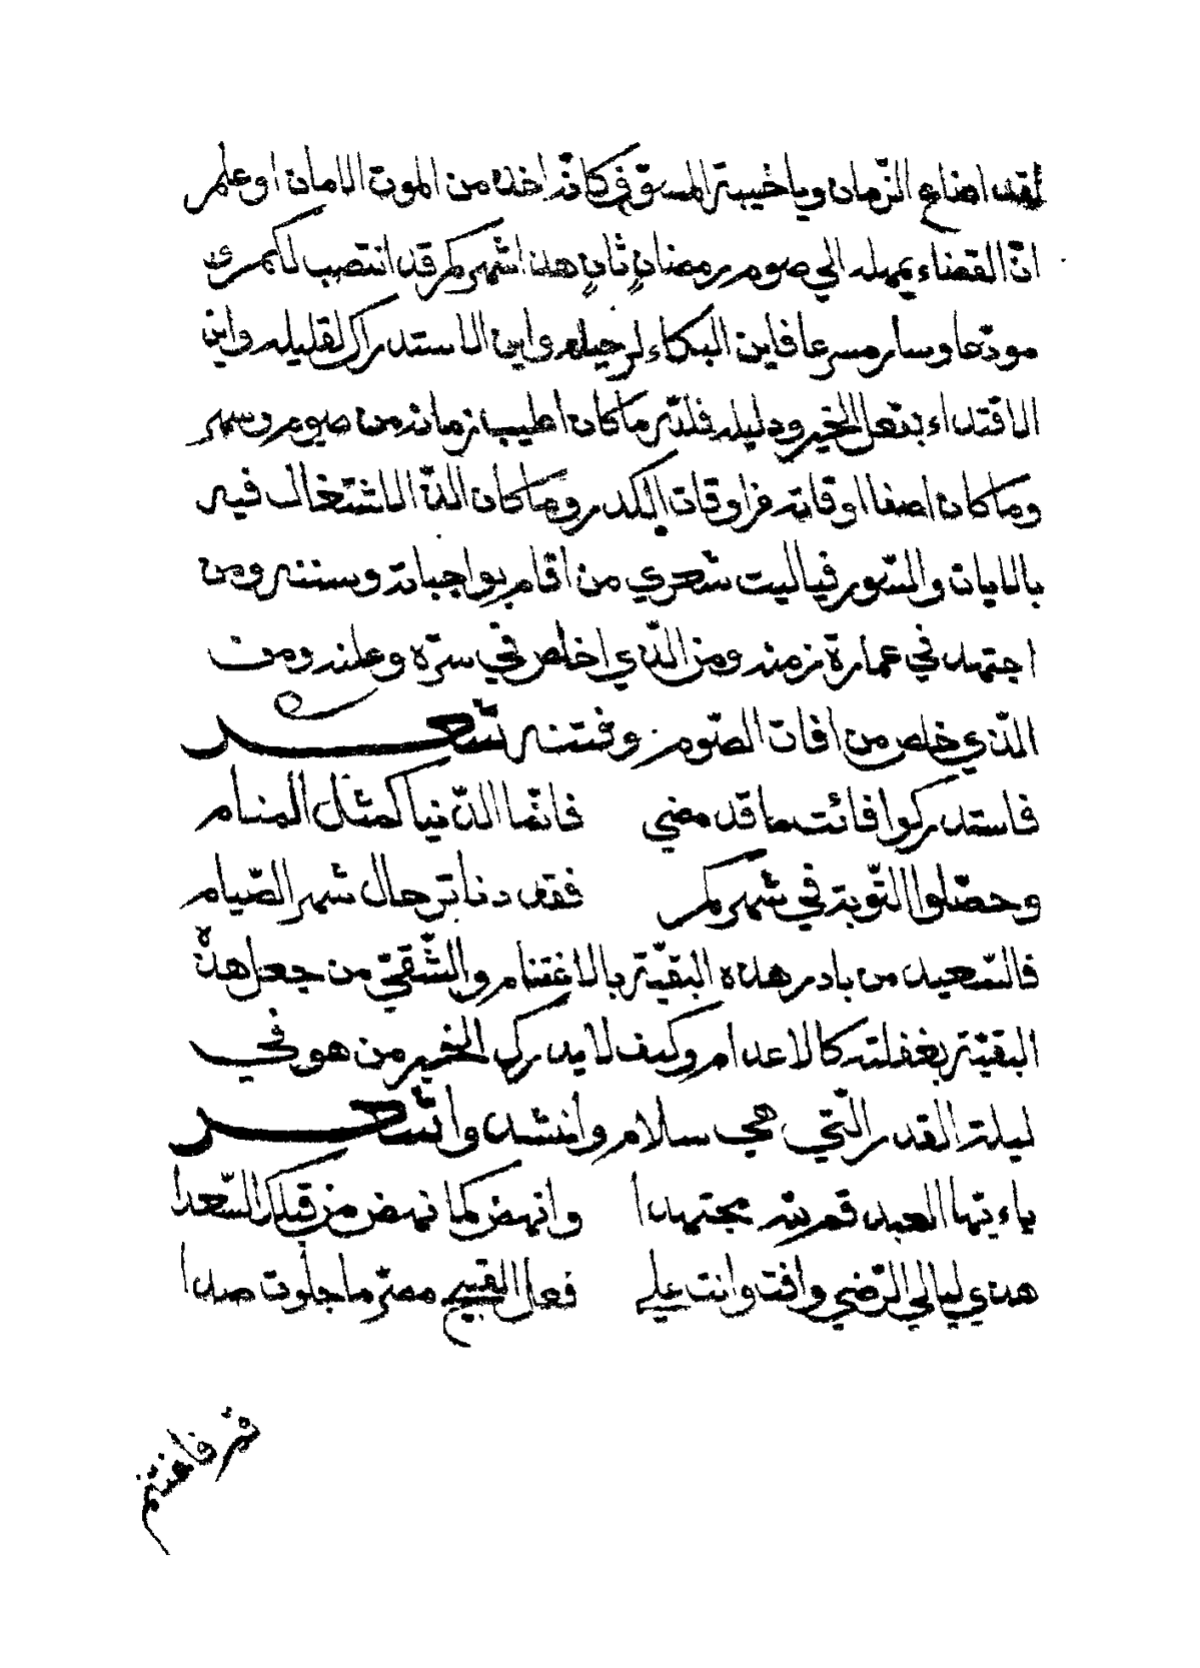 لقد اضاع الزّمان ويا خيبة المسوّف كانّه اخذ من الموت الامان او علم
انّ القضاء يمهله الي صوم رمضانٍ ثانٍ هذا شهركم قد انتصب لكم
مودّعا وسار مسرعا فاين البكاء لرحيله واين الاستدراك لقليله واين
الاقتداء بفعل الخير ودليله فللّه ما كان اطيب زمانه من صوم وسهر
وما كان اصفا اوقاته من اوقات الكدر وما كان الذّ الاشتغال فيه
بالايات والسّور فياليت شعري من اقام بواجباته وسننه ومن
اجتهد في عمارة زمنه ومن الّذي اخلص في سرّه وعلنه ومن
الّذي خلص من افات الصّوم وفتنه شعر
فاستدركوا فائت ما قد مضي فانّما الدّنيا كمثل المنام
وحصّلوا التّوبة في شهركم فقد دنا ترحال شهر الصّيام
فالسّعيد من بادر هذه البقيّة بالاغتنام والشّقيّ من جعل هذه
البقيّة بغفلته كالاعدام وكيف لا يدرك الخير من هو في
ليلة القدر الّتي هي سلام وانشد وا شعر
ياءيّها العبد قم لله مجتهدا وانهض كما نهض من قبلك السّعدا
هذي ليالي الرّضي وافت وانت علي فعل القبيح مصرّ ما جلوت صدا
شر فاغتنم